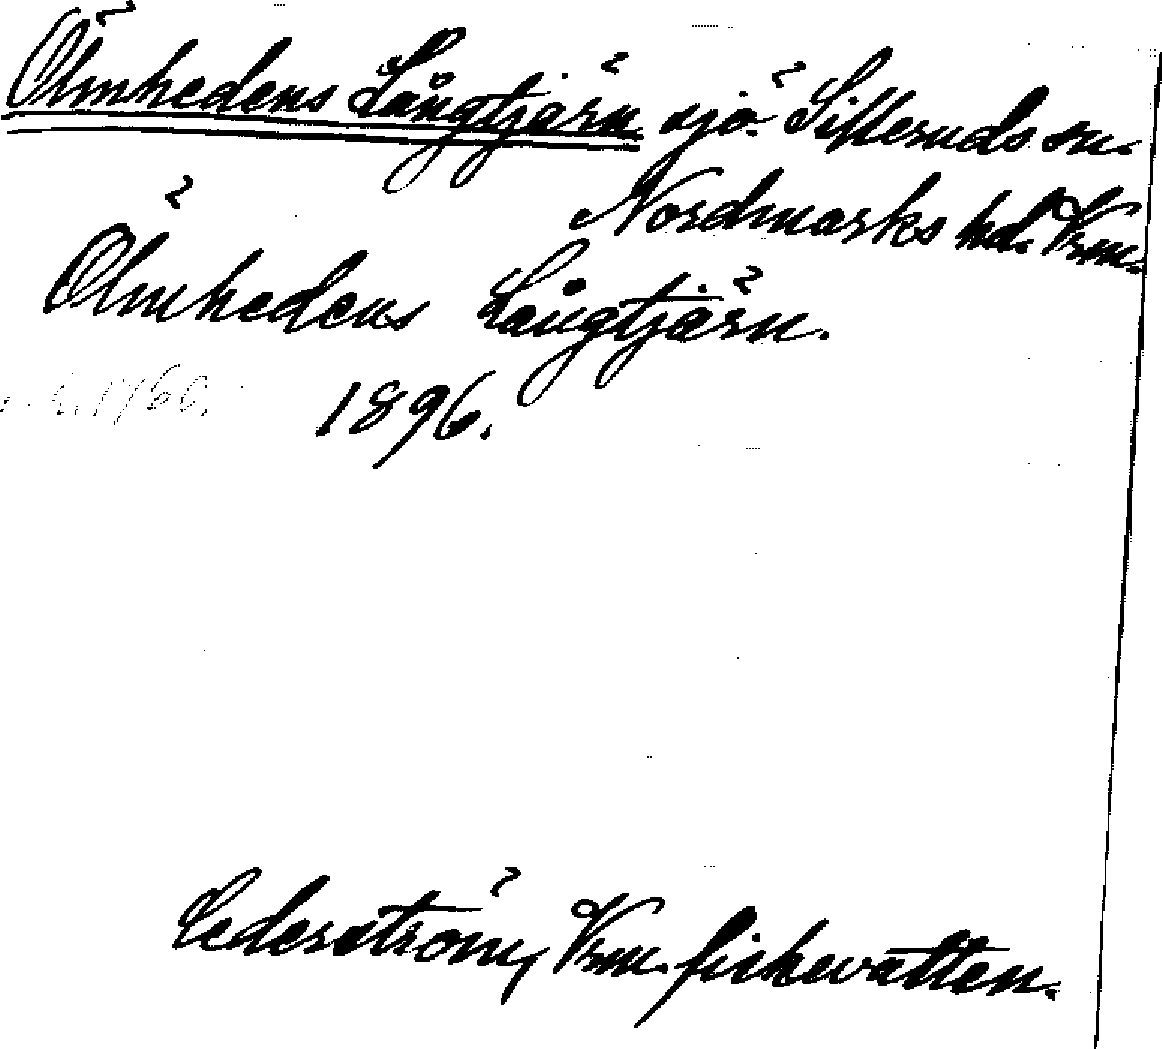 Ölmhedens Långtjärn sjö. Silleruds sn.
Nordmarks hd. Vrm.
Ölmhedens Långtjärn.
1896.
Cederström, Vrm. fiskevatten.